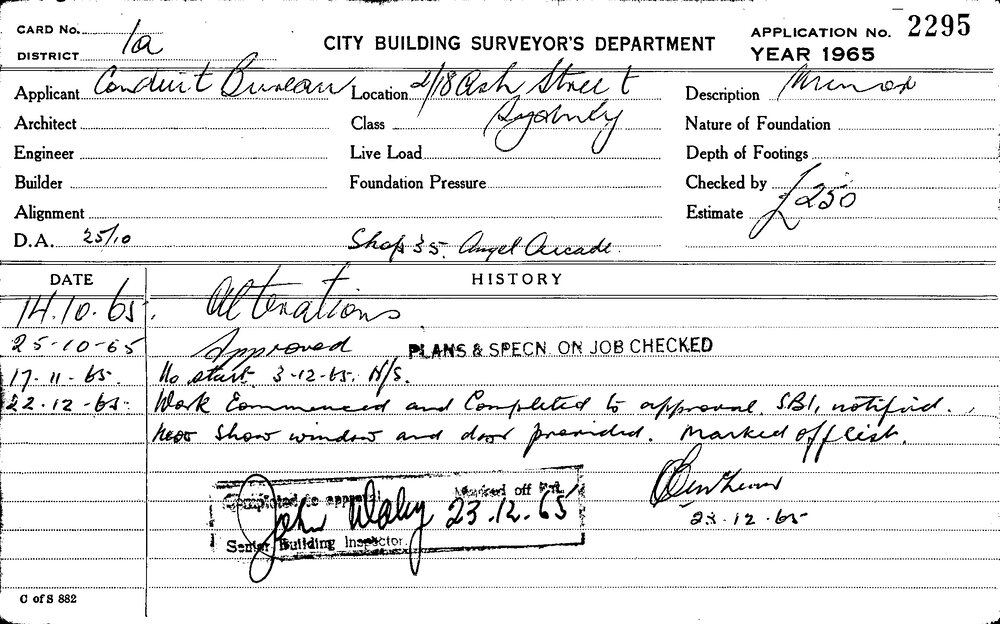 CARD No.
DISTRICT 1a
CITY BUILDING SURVEYOR'S DEPARTMENT
APPLICATION No. 2295
YEAR 1965
Applicant Conduit Bureau Location 2/18 Ash Street Description Minor
Architect Class Sydney Nature of Foundation
Engineer Live Load Depth of Footings
Builder Foundation Pressure Checked by
Alignment Estimate £250
D.A. 25/10 Shop 35. Angel Arcade.
DATE HISTORY
14.10.65. Alterations
25-10-65 Approved PLANS & SPECN. ON JOB CHECKED
17-11-65. No start. 3-12-65. N/S.
22-12-65- Work Commenced and Completed to approval. S.B.I. notified.
New show window and door provided. Marked off list.
Completed to approval Marked off
John 23.12.65
Senior Building Inspector.
23-12-65
C of S 882